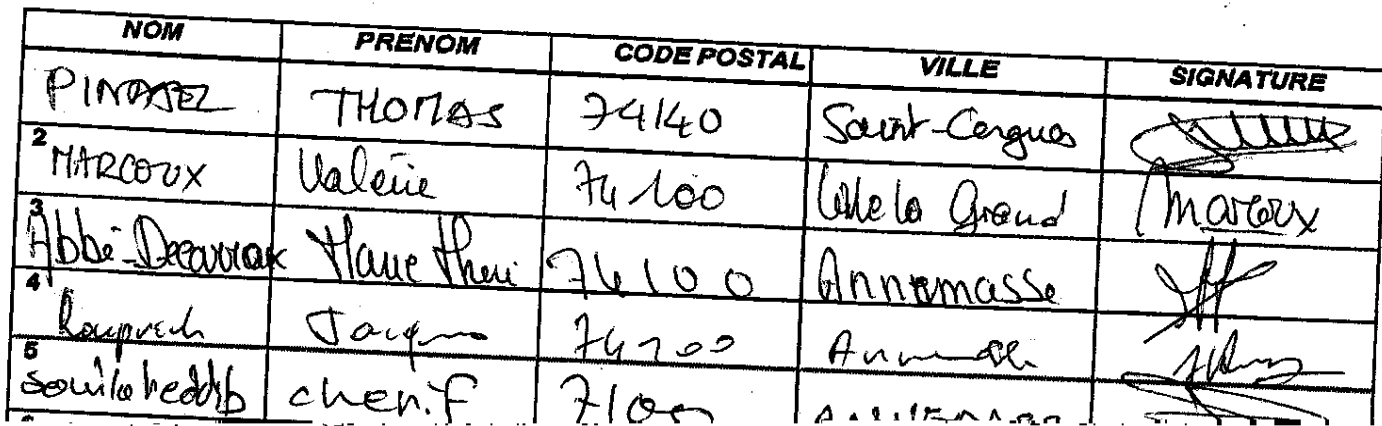 NOM PRENOM CODE POSTAL VILLE SIGNATURE
THOMAS 74140 Saint-Cergues
2 MARCOUX Valérie 74100 Ville la Grand Marcoux
3 Abbé-Decarroux Marie 74100 Annemasse
4 Jacques 74100 Annemasse
5 cherif